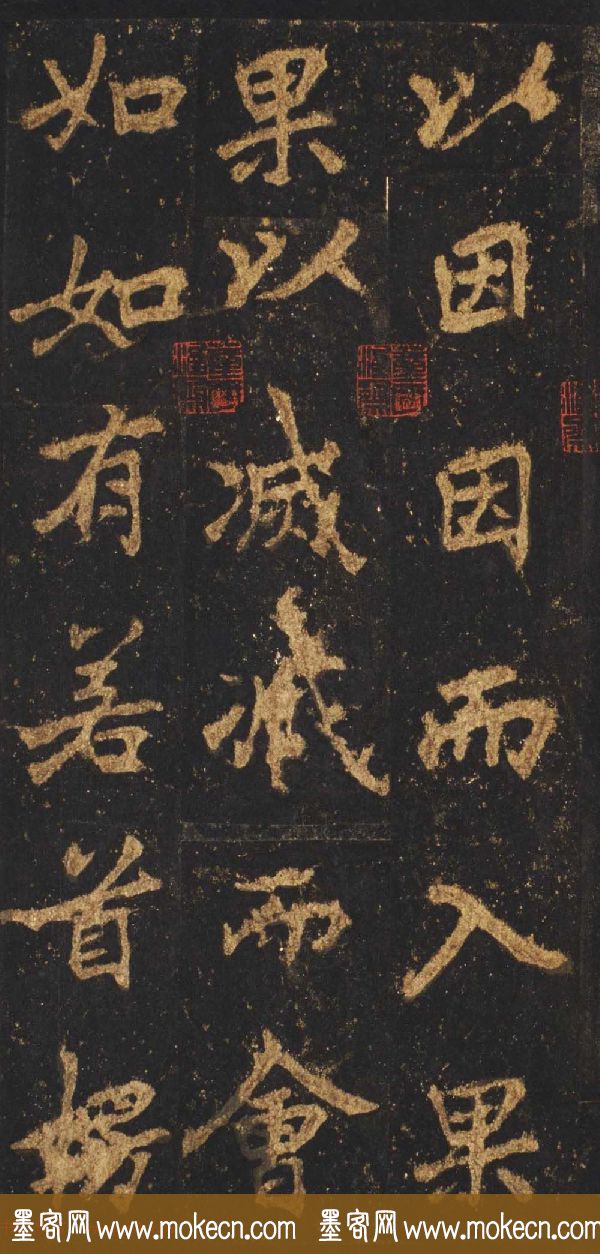 以因因而入果
果以滅滅而會
如如有若首楞
墨客网 www.mokecn.com 墨客网 www.mokecn.com